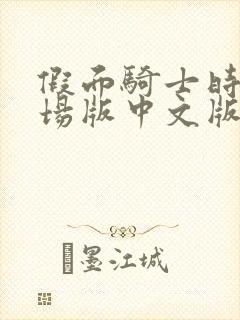 假面騎士時
場版中文版
墨江城